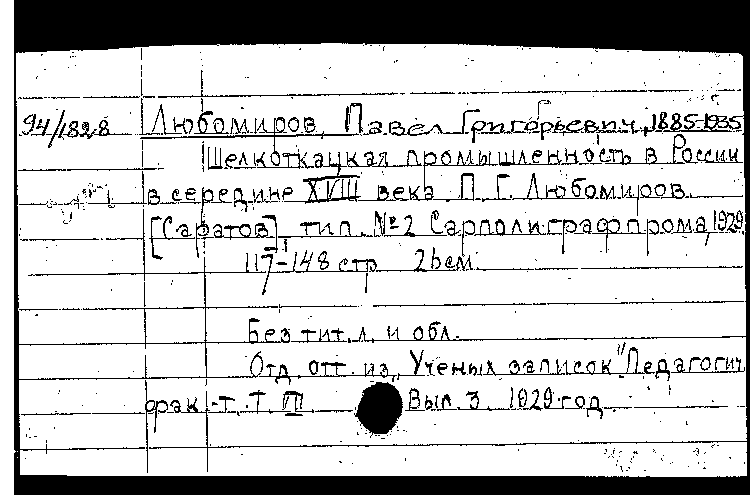 94/1828 Любомиров, Павел Григорьевич, 1885-1935
Шелкоткацкая промышленность в России
в середине XVIII века. П. Г. Любомиров.
[Саратов] тип. №2 Сарполиграфпрома, 1929
117-148 стр. 26 см.
Без тит. л. и обл.
Отд. отт. из „Ученых записок" Педагогич.
фак.-т. Т. VII. Вып. 3. 1929 год.